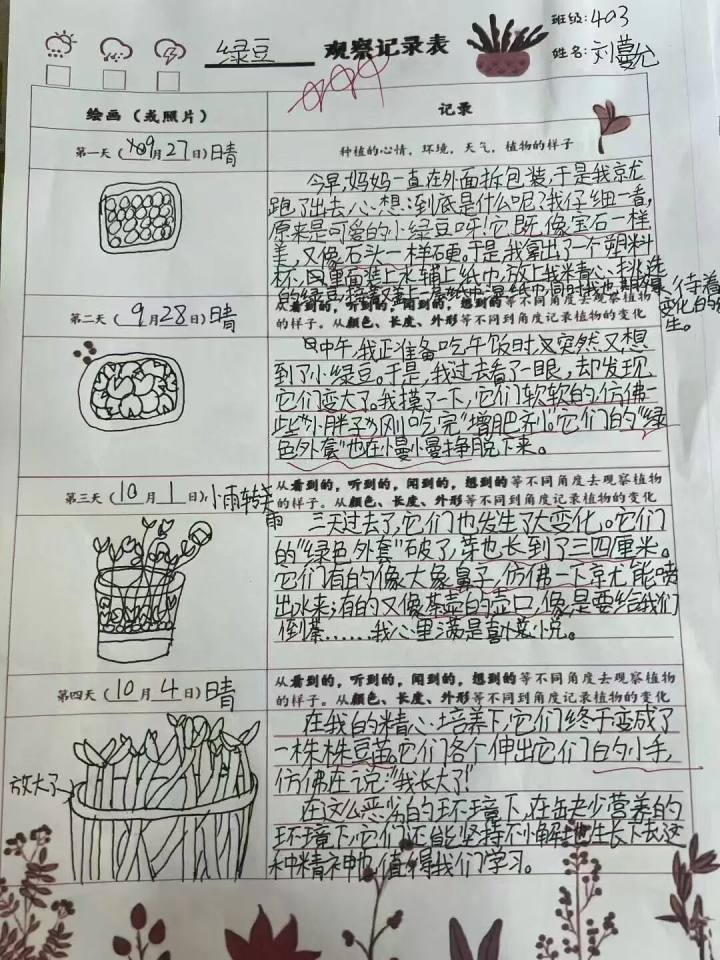 班级:403
绿豆 观察记录表
姓名:刘蔓允
绘画（或照片）
记录
第一天（09月27日）晴
种植的心情，环境，天气，植物的样子
今早,妈妈一直在外面拆包装,于是我就
跑了出去,心想:到底是什么呢?我仔细一看,
原来是可爱的小绿豆呀!它既像宝石一样
美,又像石头一样硬。于是,我拿出了一个塑料
杯,里面装上水,铺上纸巾,放上我精心挑选
的绿豆,接着又盖上一层纸巾
待着
变化的
生。
第二天（9月28日）晴
从看到的，听到的，闻到的，想到的等不同角度去观察植物
的样子。从颜色、长度、外形等不同到角度记录植物的变化
中午,我正准备吃午饭时,又突然又想
到了小绿豆。于是,我过去看了一眼,却发现
它们变大了。我摸了一下,它们软软的,仿佛一
些“小胖子”刚吃完“增肥剂”。它们的“绿
色外套”也在慢慢挣脱下来。
第三天（10月1日）:小雨转
雨
从看到的，听到的，闻到的，想到的等不同角度去观察植物
的样子。从颜色、长度、外形等不同到角度记录植物的变化
三天过去了,它们也发生了大变化。它们
的“绿色外套”破了,芽也长到了三四厘米。
它们有的像大象鼻子,仿佛一下就能喷
出水来;有的又像茶壶的壶口,像是要给我们
倒茶……我心里满是喜悦。
第四天（10月4日）晴
从看到的，听到的，闻到的，想到的等不同角度去观察植物
的样子。从颜色、长度、外形等不同到角度记录植物的变化
放大了
在我的精心培养下,它们终于变成了
一株株豆苗。它们各个伸出它们的小手,
仿佛在说:“我长大了!”
在这么恶劣的环境下,在缺少营养的
环境下,它们还能坚持不懈地生长下去,这
种精神也值得我们学习。